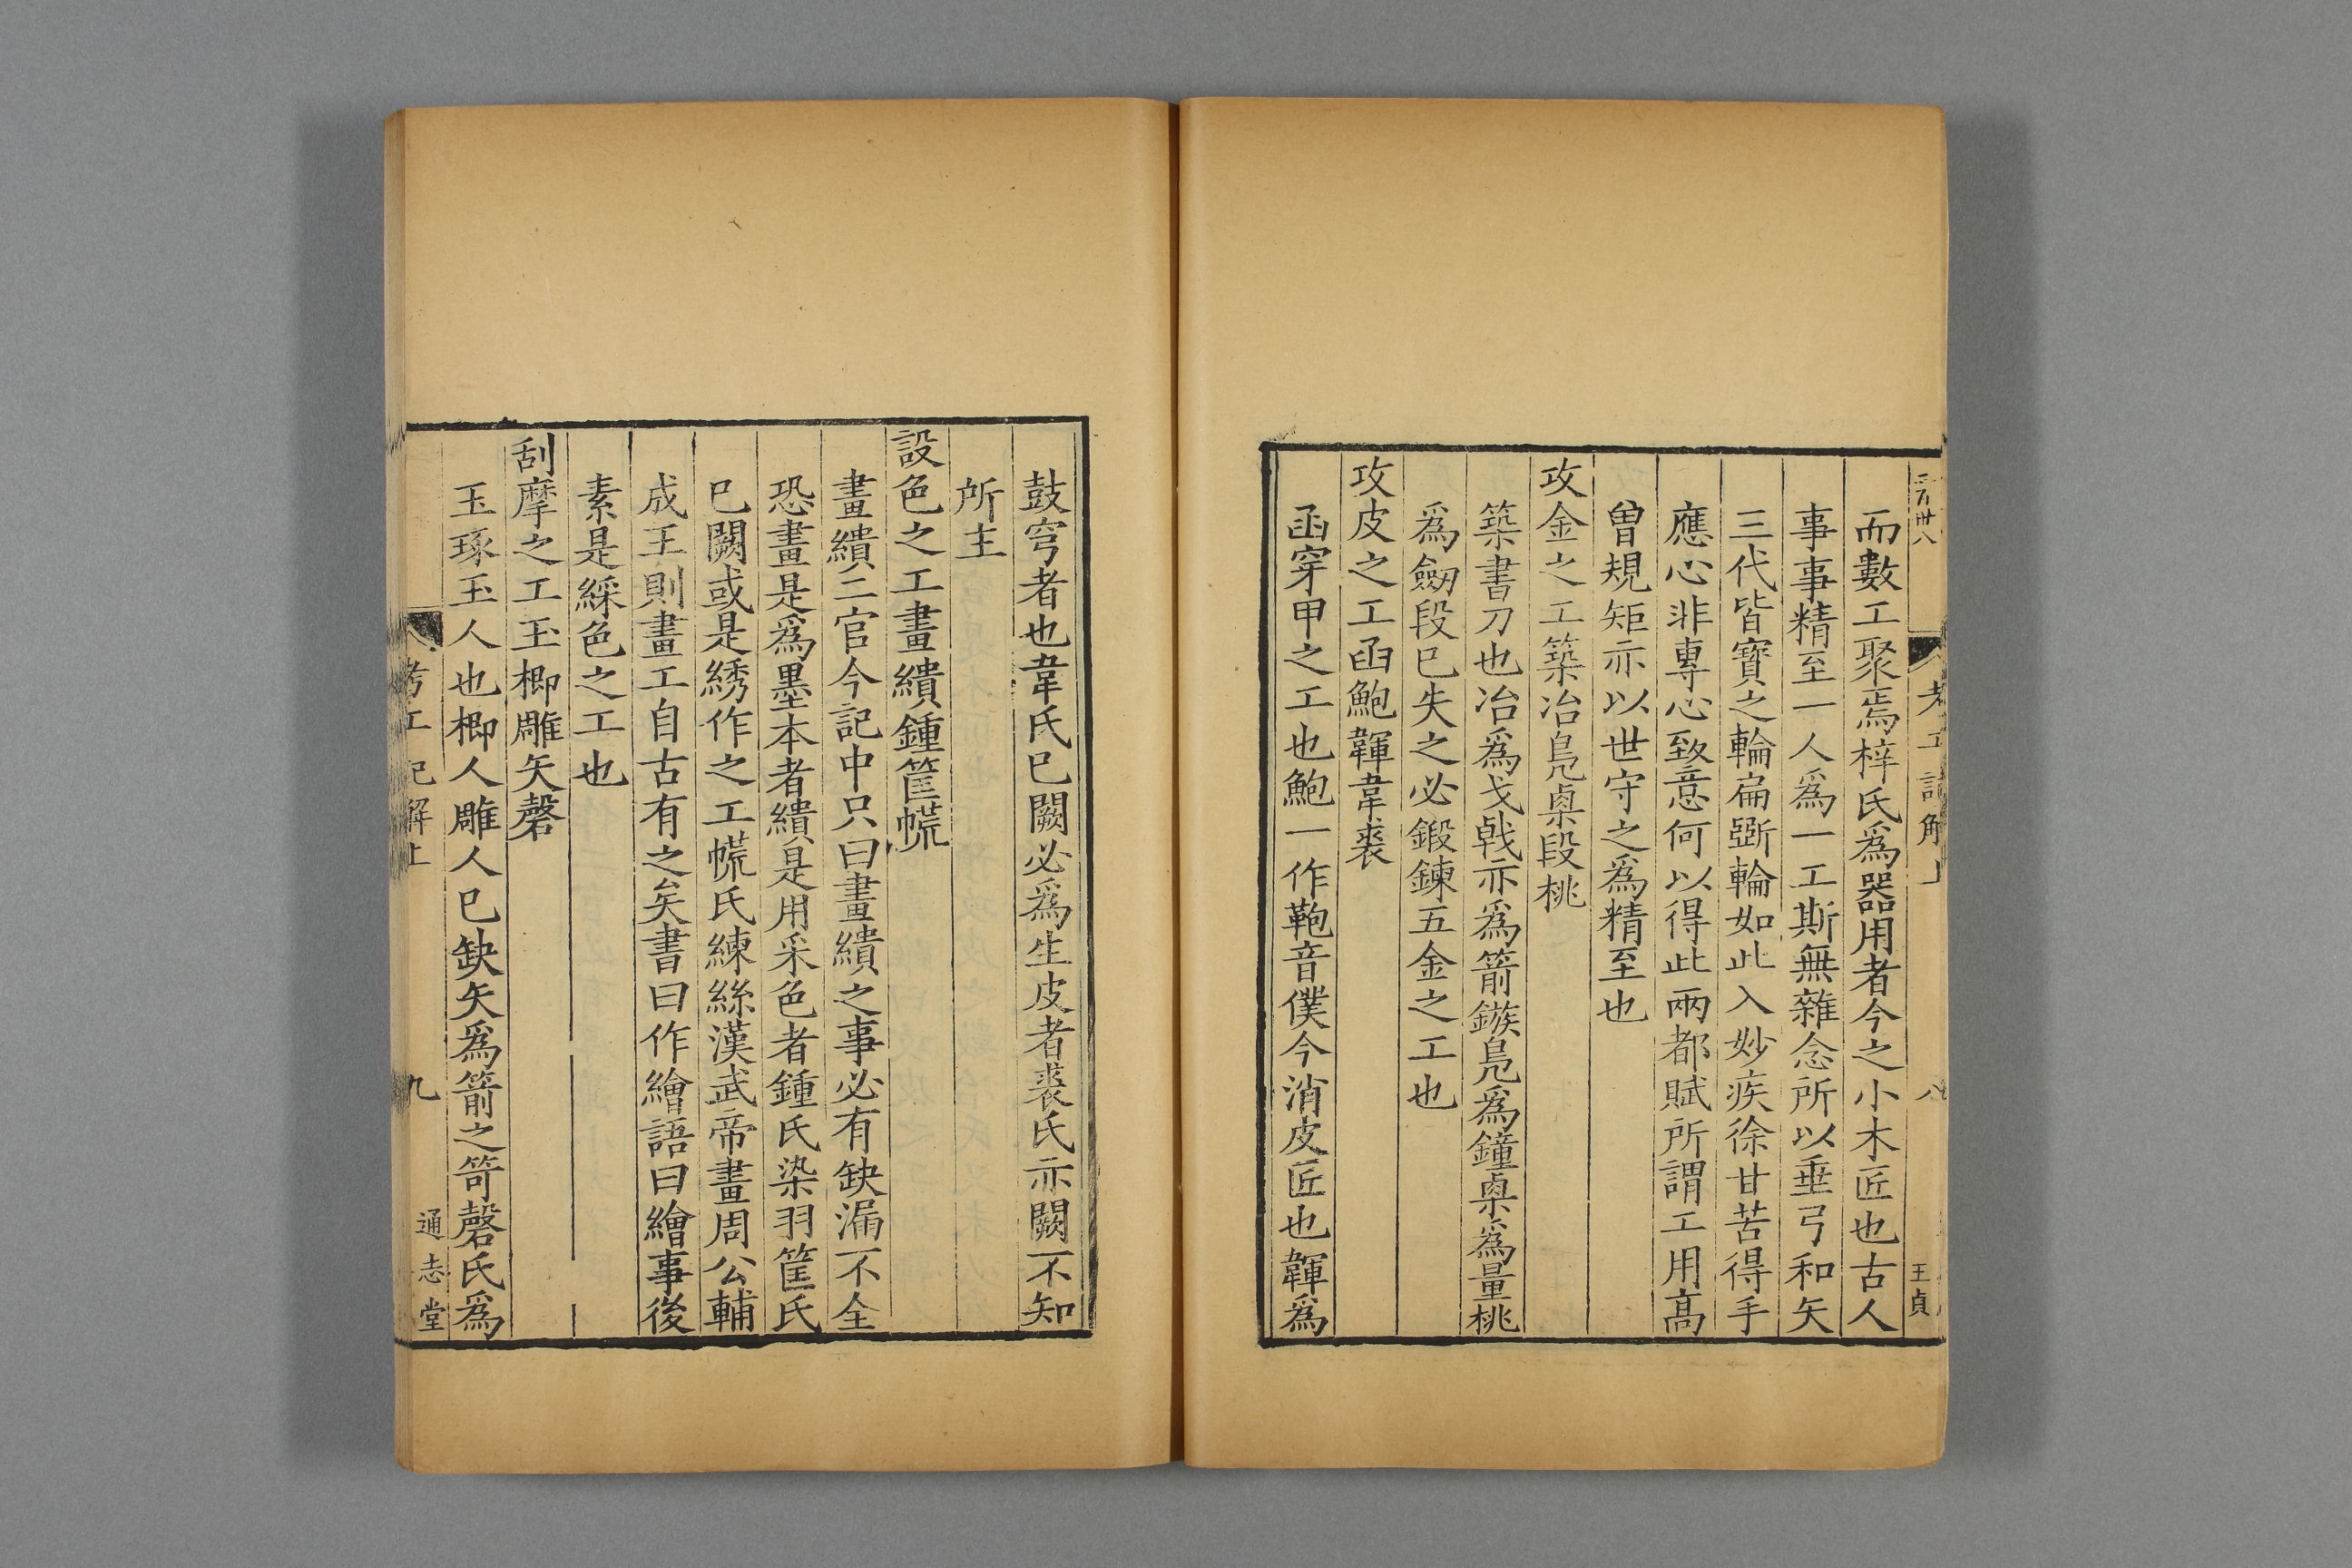 而數工聚焉梓氏爲器用者今之小木匠也古人
事事精至一人爲一工斯無雜念所以垂弓和矢
三代皆寶之輪扁斵輪如此入妙疾徐甘苦得手
應心非專心致意何以得此兩都賦所謂工用高
曾規矩亦以世守之爲精至也
攻金之工築冶鳧㮚段桃
築書刀也冶爲戈戟亦爲箭鏃鳧爲鐘㮚爲量桃
爲劒段巳失之必鍛鍊五金之工也
攻皮之工函鮑韗韋裘
函穿甲之工也鮑一作鞄音僕今消皮匠也韗爲
考工記解上
八
王貞
鼓穹者也韋氏巳闕必爲生皮者裘氏亦闕不知
所主
設色之工畫繢鍾筐㡛
畫繢二官今記中只曰畫繢之事必有缺漏不全
恐畫是爲墨本者繢是用采色者鍾氏染羽筐氏
巳闕或是綉作之工㡛氏練絲漢武帝畫周公輔
成王則畫工自古有之矣書曰作繪語曰繪事後
素是綵色之工也
刮摩之工玉楖雕矢磬
玉琢玉人也楖人雕人巳缺矢爲箭之笴磬氏爲
考工記解上
九
通志堂